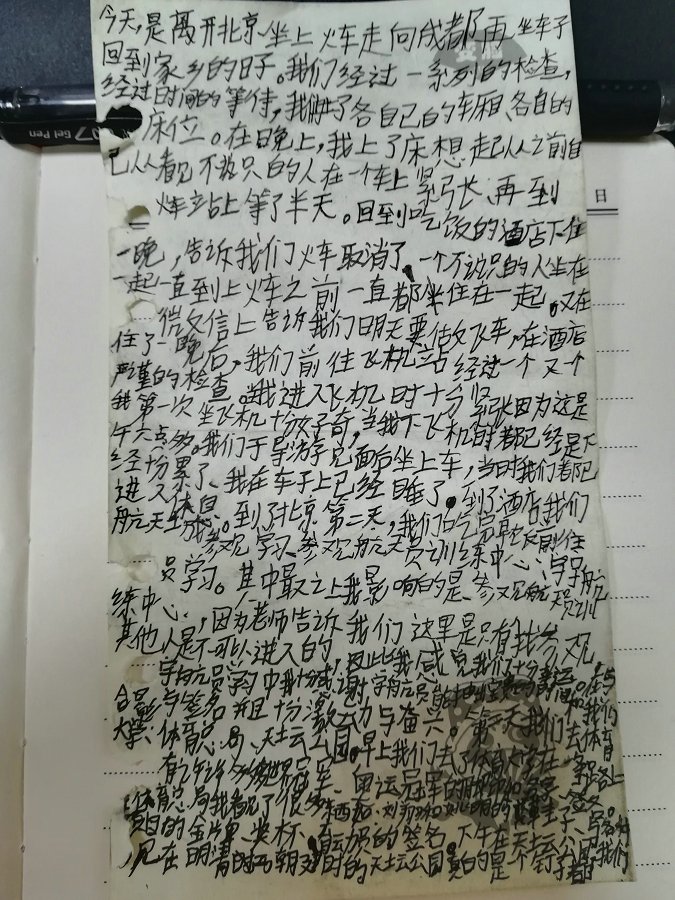 今天,是离开北京坐上火车走向成都再坐车子
回到家乡的日子。我们经过一系列的检查,
经过时间的等待,我们进了各自己的车厢、各自的
床位。在晚上,我上了床想起从之前自
己从看见不认识的人在一个车上紧张、再到
火车站上等了半天。回到吃饭的酒店下住
一晚,告诉我们火车取消了,一个不认识的人坐在
一起一直到上火车之前一直都坐住在一起。又在
微信上告诉我们明天要做飞车,在酒店
住了一晚后,我们前往飞机站经过一个又一个
严谨的检查。当我进入飞机时十分紧张因为这是
我第一次坐飞机十分好奇,当我下飞机时都已经是下
午六点多。我们于导游见面后坐上车,当时我们都已
经十分累了、我在车子上已经睡了。到了酒店我们
进入休息。到了北京第二天,我们吃完早饭前往
航天城参观学习、参观航天员训练中心、宇航
员学习。其中最之上我影响的是、参观航天员训
练中心、因为老师告诉我们这里是只有我参观,
其他人是不可以进入的,因此我感觉我们十分幸运。在与
宇航员学习中我十分感谢宇航员能抽空
合影与签名并且十分激动与奋兴。第三天我们去体育
大学、体育总局、天坛公园。早上我们去了体育大学在
有许许多多世界冠军、奥运冠军的
体育总局我看见了很多
的金牌、奖杯、运动员的签名。下午在天坛公园
见在明清时期建的天坛公园真的是